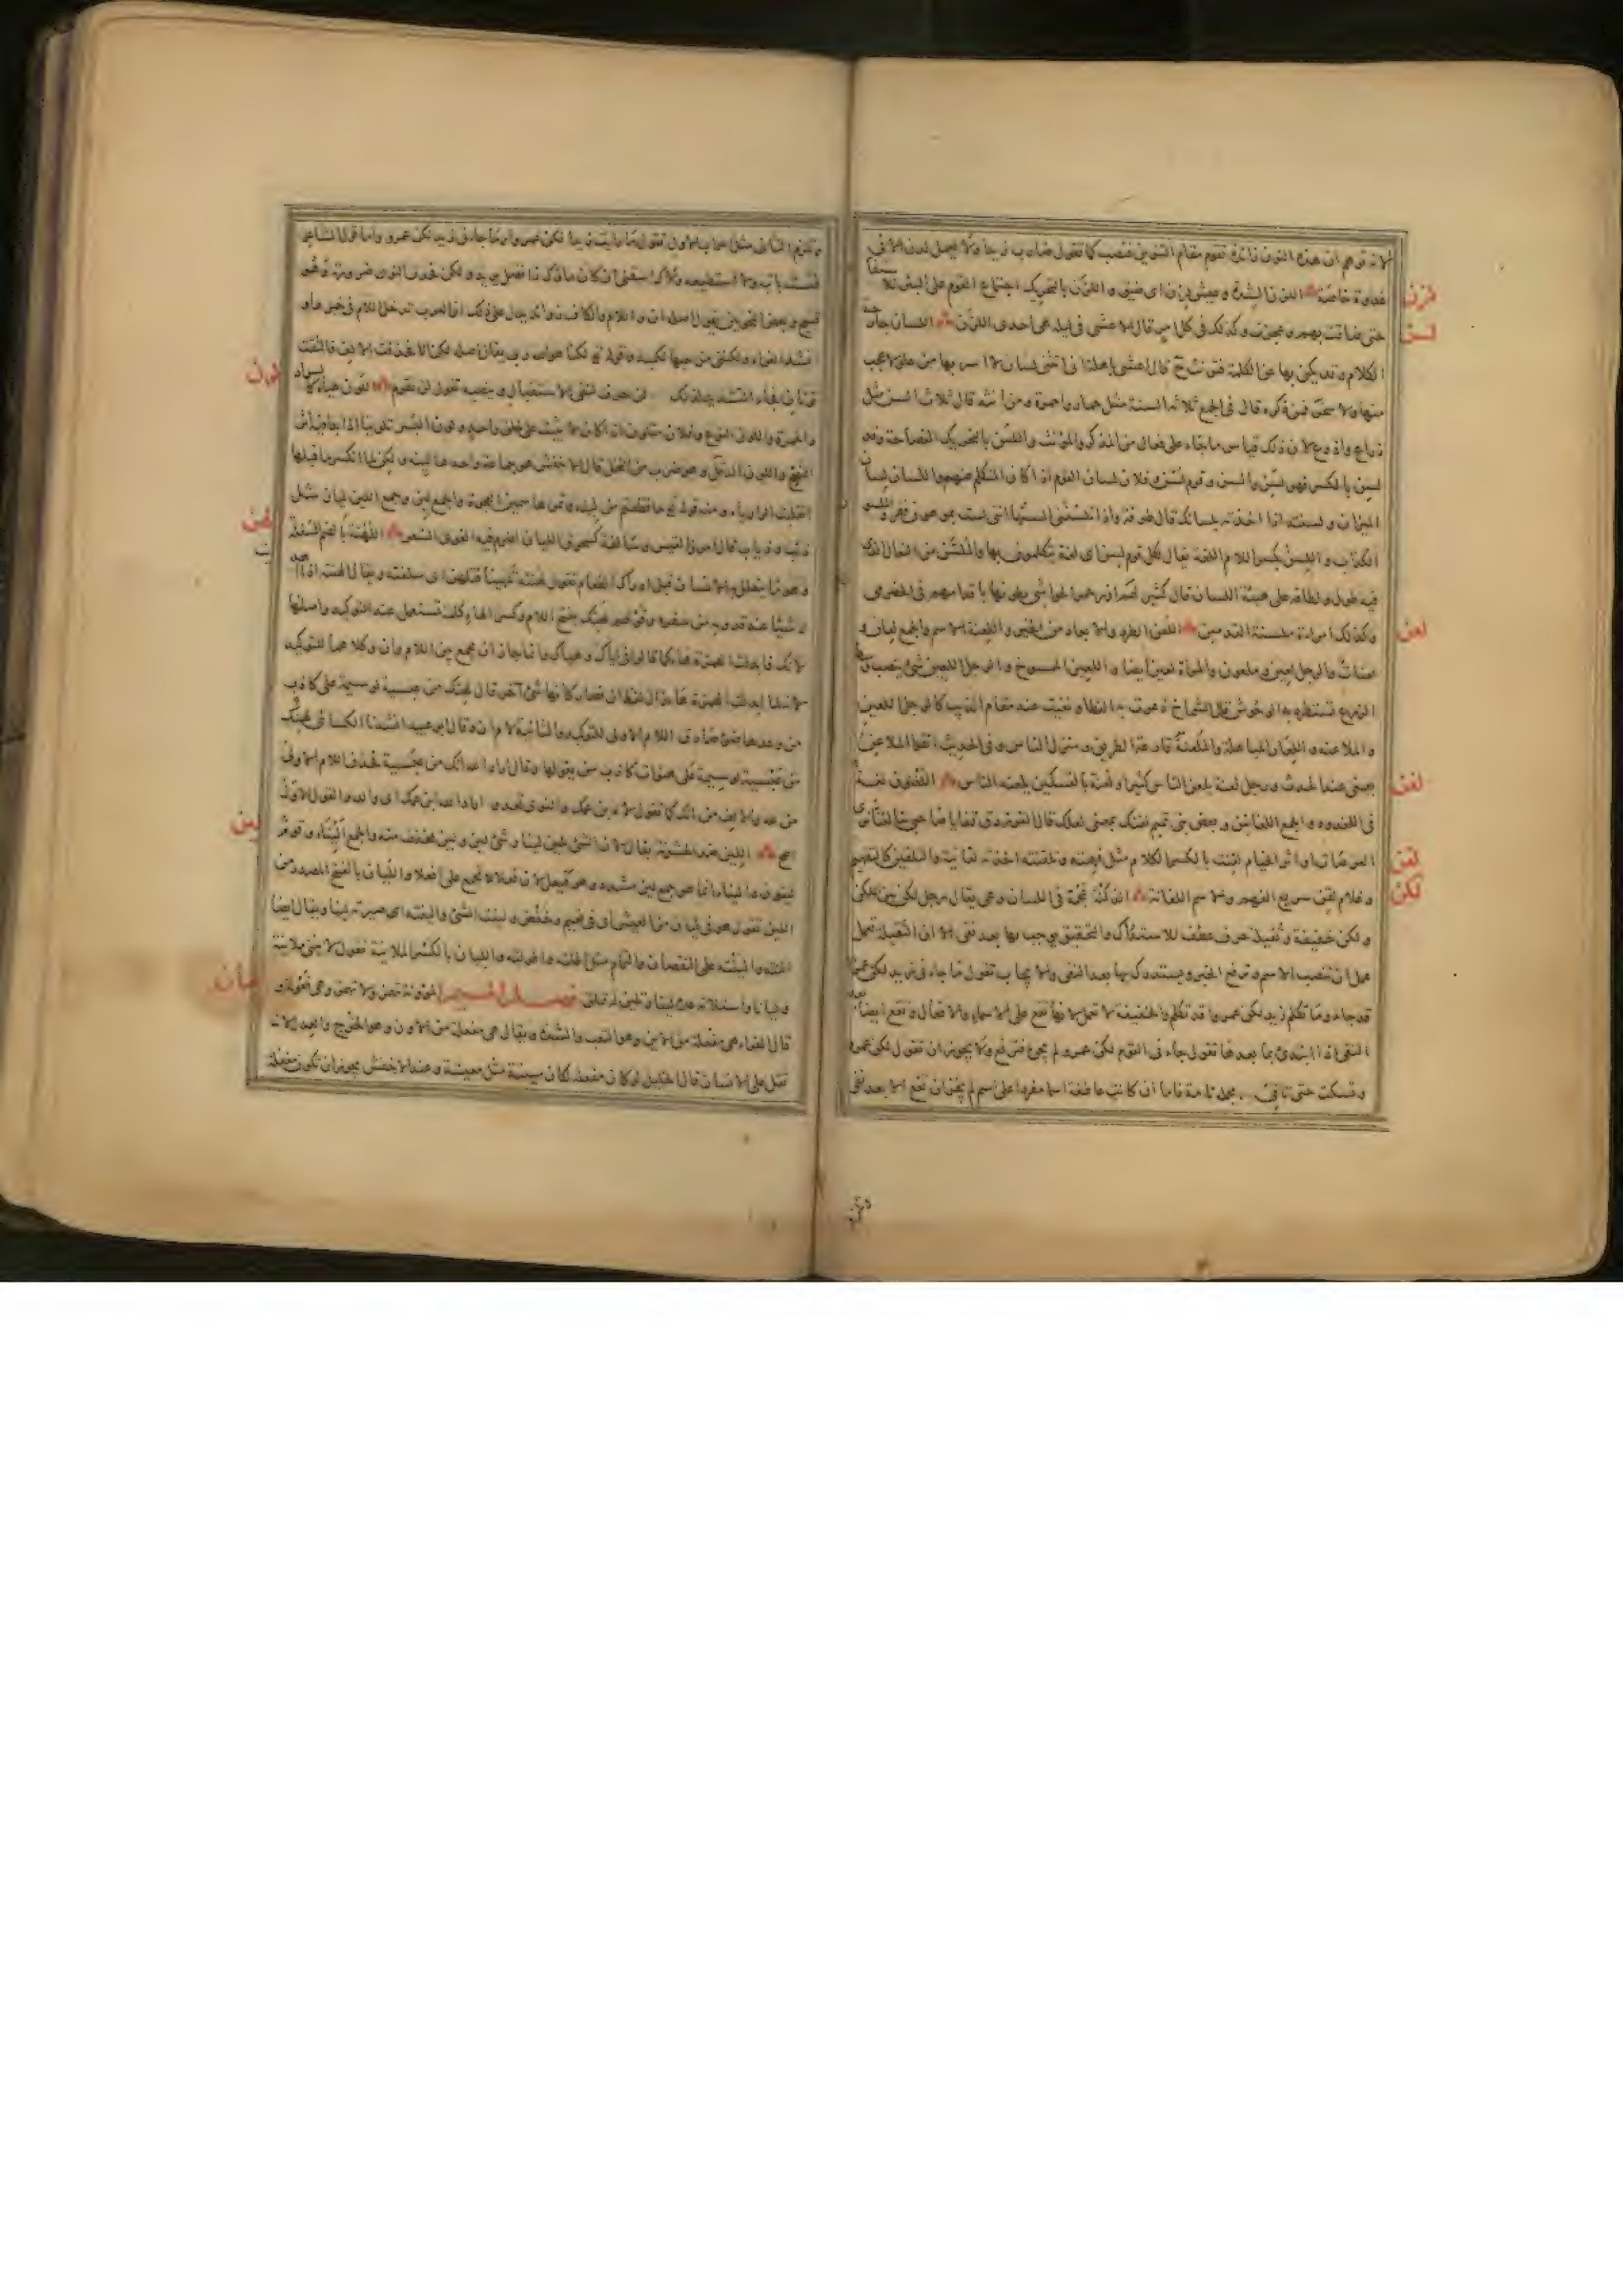 لانه توهم ان هذه النون زائدة تقوم مقام التنوين فنصب كما تقول ضارب زيدا ولا يعمل لدن الا في
غدوة خاصة اللزن الشدة وعيش لزن اى ضيق واللزن بالتحريك اجتماع القوم على البئر للاستقاء
لزن
حتى ضاقت بهم وعجزت وكذلك في كل امر قال الاعشى في ليلة هى احدى اللزن اللسان جارحة
لسن
الكلام وقد يكنى بها عن الكلمة فتونث ح قال اعشى باهلة انى اتتنى لسان لا اسر بها من علو لا عجب
منها ولا سخر فمن ذكره قال في الجمع ثلاثة السنة مثل حمار واحمرة ومن انثه قال ثلاث السن مثل
ذراع واذرع لان ذلك قياس ما جاء على فعال من المذكر والمؤنث واللسن بالتحريك الفصاحة وقد
لسن بالكسر فهو لسن والسن وقوم لسن وفلان لسان القوم اذا كان المتكلم عنهم واللسان لسان
الميزان ولسنته اذا اخذته بلسانك قال طرفة واذا تلسننى السنها اننى لست بموهون فقر والملسون
الكذاب واللسن بكسر اللام اللغة يقال لكل قوم لسن اى لغة يتكلمون بها والملسن من النعال الذى
فيه طول ولطافة على هيئة اللسان قال كثير لهم ازر حمر الحواشى يطونها باقدامهم في الحضرمى
وكذلك امراة ملسنة القدمين اللعن الطرد والابعاد من الخير واللعنة الاسم والجمع لعان و
لعن
لعنات والرجل لعين وملعون والمراة لعين ايضا واللعين الممسوخ والرجل اللعين شئ ينصب وسط
الزرع تستطرد به الوحوش قال الشماخ ذعرت به القطا ونفيت عنه مقام الذيب كالرجل اللعين
والملاعنه واللعان المباهلة والملعنة قارعة الطريق ومنزل الناس وفي الحديث اتقوا الملاعن
يعنى عند الحدث ورجل لعنة يلعن الناس كثيرا ولعنة بالتسكين يلعنه الناس اللغنون لغة
لغن
في اللغدود والجمع اللغانين وبعض بنى تميم لغنك بمعنى لعلك قال الفرزدق قفا يا صاحبى بنا لغنا نرى
العرصات او اثر الخيام لقنت بالكسر الكلام مثل فهمته وتلقنته اخذته لقانية والتلقين كالتفهيم
لقن
وغلام لقن سريع الفهم والاسم اللقانة اللكنة عجمة في اللسان وعى يقال رجل الكن بين اللكن
لكن
ولكن خفيفة وثقيلة حرف عطف للاستدراك والتحقيق يوجب بها بعد نفى الا ان الثقيلة تعمل
عمل ان تنصب الاسم وترفع الخبر ويستدرك بها بعد النفى والايجاب تقول ما جاءنى زيد لكن عمرا
قد جاء وما تكلم زيد لكن عمروا قد تكلم والخفيفة لا تعمل لانها تقع على الاسماء والافعال وتقع ايضا بعد
النفى اذا ابتدئ بما بعدها تقول جاءنى القوم لكن عمرو لم يجئ فترفع ولا يجوز ان تقول لكن عمرو
وتسكت حتى تاتى بجملة تامة فاما ان كانت عاطفة اسما مفردا على اسم لم يجز ان تقع الا بعد نفى
وتلزم الثانى مثل اعراب الاول تقول ما رايت زيدا لكن عمروا وما جاءنى زيد لكن عمرو واما قول الشاعر
فلست بآتيه ولا استطيعه ولاك اسقنى ان كان ماؤك ذا فضل يريد ولكن فحذف النون ضرورة وهو
قبيح وبعض النحويين يقول اصله ان واللام والكاف زوائد يدل على ذلك ان العرب تدخل اللام في خبرها و
انشد الفراء ولكننى من حبها لكميد وقوله تع لكنا هو الله ربى يقال اصله لكن انا فحذفت الالف فالتقت
نونان فجاء التشديد لذلك لن حرف لنفى الاستقبال وينصبه تقول لن تقوم اللون هيأة كالسواد
لون
والحمرة واللون النوع وفلان متلون اذا كان لا يثبت على خلق واحد ولون البسر تلوينا اذا بدا فيه اثر
النضج واللون الدقل وهو ضرب من النخل قال الاخفش هو جماعة واحدها لينة ولكن لما انكسر ما قبلها
انقلبت الواو ياء ومنه قوله تع ما قطعتم من لينة وتمرها سمين العجوة والجمع لين وجمع اللين ليان مثل
ذئب وذياب قال امرؤ القيس وسالفة كسحوق الليان اضرم فيه الغوى السعر اللهنة بالضم السلفة
لهن
وهو ما يتعلل به الانسان قبل ادراك الطعام تقول لهنته تلهينا فتلهن اى سلفته ويقال الهنته اذا اهديت
له شيئا عند قدومه من سفره وقولهم لهنك بفتح اللام وكسر الهاء كلمة تستعمل عند التوكيد واصلها
لانك فابدلت الهمزة هاء كما قالوا في اياك وهياك وانما جاز ان يجمع بين اللام وان وكلاهما للتوكيد
لانه لما ابدلت الهمزة هاء زال لفظ ان فصار كانها شئ آخر قال لهنك من عبسية لوسيمة على كاذب
من وعدها ضوء صادق اللام الاولى للتوكيد والثانية لام ان وقال ابو عبيد انشدنا الكسائى لهنك
من عبسية لوسيمة على هنوات كاذب من يقولها وقال اراد لله انك من عبسية فحذف اللام الاولى
من لله والالف من انك كما تقول لاه ابن عمك والنوى تعدو اراد لله ابن عمك اى والله والقول الاول
اصح اللين ضد الخشونة يقال لان الشئ يلين لينا وشئ لين ولين مخفف منه والجمع اليناء وقوم
لين
لينون واليناء انما هو جمع لين مشدد وهو فيعل لان فعلا لا تجمع على افعلاء والليان بالفتح المصدر من
اللين تقول هو في ليان من العيش اى في نعيم وخفض ولينت الشئ والينته اى صيرته لينا ويقال ايضا
النته والينته على النقصان والتمام مثل اطلته واطولته والليان بالكسر الملاينة تقول لاينى ملاينة
وليانا واستلانه عده لينا وتلين له تملق فصل الميم المؤونة تهمز ولا تهمز وهى فعولة و
مأن
قال الفراء هى مفعلة من الاين وهو التعب والشدة ويقال هى مفعلة من الاون وهو الخرج والعدل لانه
ثقل على الانسان قال الخليل لو كان مفعلة لكان مينة مثل معيشة وعند الاخفش يجوز ان تكون مفعلة